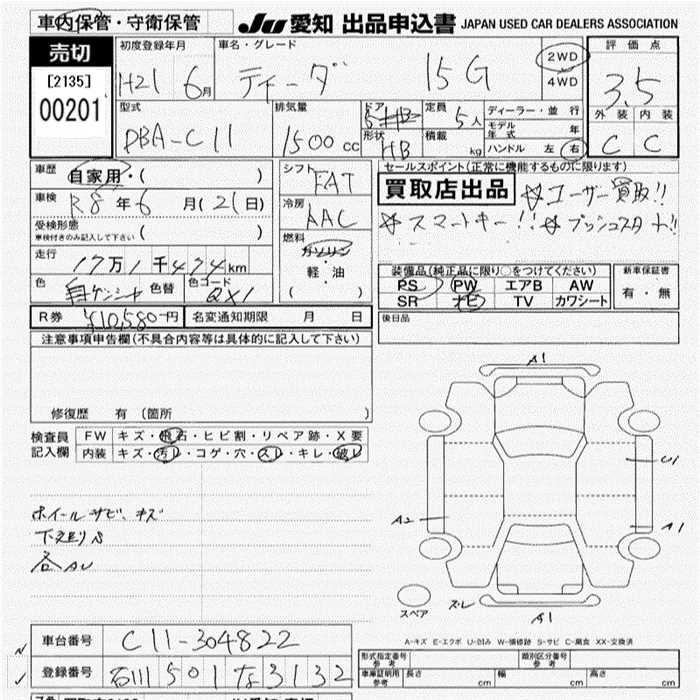 車内保管・守衛保管
JU 愛知 出品申込書 JAPAN USED CAR DEALERS ASSOCIATION
売切
[2135]
00201
初度登録年月
H21 6月
車名・グレード
ティーダ 15G
2WD
4WD
評価点
3.5
外装 内装
C C
型式
DBA-C11
排気量
1500cc
ドア
5
形状
HB
定員
5人
積載
kg
ディーラー・並行
モデル年式 年
ハンドル 左 右
車歴
自家用・( )
車検
R8年6月(21日)
受検形態
車検付きのみ記入して下さい ( )
走行
17万1千474km
色
色替
色コード
QX1
シフト
FAT
冷房
AAC
燃料
ガソリン
軽・油
( )
セールスポイント(正常に機能するものに限ります)
買取店出品 ☆ユーザー買取!!
☆スマートキー!! ☆プッシュスタート!!
装備品(純正品に限り○をつけてください)
PS PW エアB AW
SR ナビ TV カワシート
新車保証書
有・無
後日品
R券 ¥10,580円 名変通知期限 月 日
注意事項申告欄(不具合内容等は具体的に記入して下さい)
修復歴 有 (箇所 )
検査員
記入欄
FW キズ・飛石・ヒビ割・リペア跡・X要
内装 キズ・汚レ・コゲ・穴・スレ・キレ・破レ
ホイールサビ、キズ
下廻りS
各AU
A1
U1
A2
A1
スペア
ズレ
A1
A-キズ E-エクボ U-凹み W-補修跡 S-サビ C-腐食 XX-交換済
車台番号 C11-304822
登録番号 石川501な3132
形式指定番号
参考
類別区分番号
参考
車庫証明用
参考
長さ cm 幅 cm 高さ cm